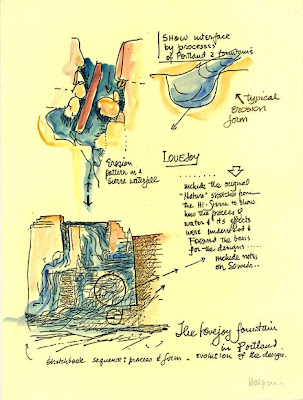 SHOW interface
by processes
of Portland 2 fountains
typical
erosion
form
Erosion
pattern in a
Sierra waterfall
LOVEJOY
include the original
"Nature" sketches from
the Hi-Sierra to show
how the process of
water & its effects
were understood &
Formed the basis
for the designs
include notes
on Sounds..
The Lovejoy fountain
in Portland.
Sketchbook sequence: process & form - evolution of the design.